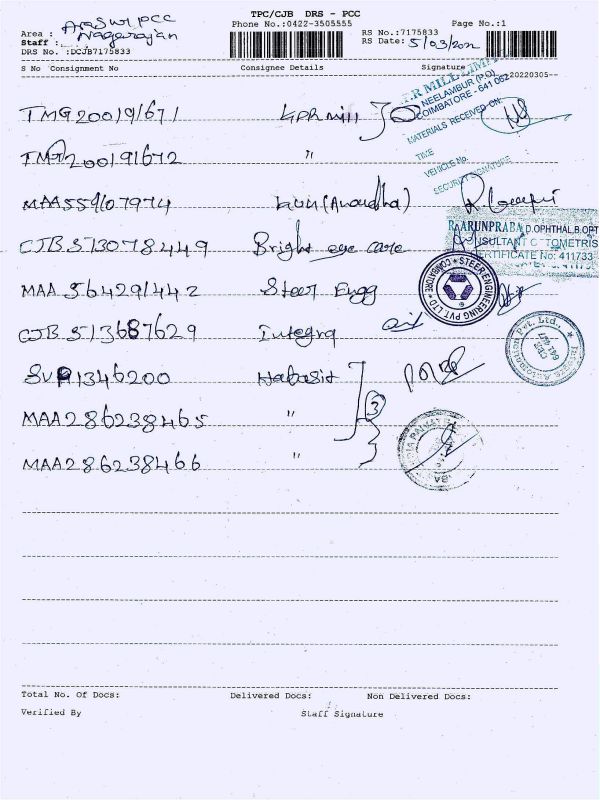 TPC/CJB DRS - PCC
Phone No.:0422-3505555
Page No.:1
Area : Arasur PCC
Staff : Nagarajan
DRS No. :DCJB7175833
RS No.:7175833
RS Date: 5/03/2022
S No Consignment No Consignee Details Signature
20220305--
TMG200191671 KPR mill
TMG200191672 "
MAA559107974
CJB513078449 Bright eye care
MAA564291442 Steer Engg
CJB513687629 Integra
1346200 Habasit
MAA286238465 "
MAA286238466 "
3
NEELAMBUR (P.O)
COIMBATORE - 641 062
MATERIALS RECEIVED ON
TIME
VEHICLE No.
SECURITY SIGNATURE
ARUNPRABA D.OPHTHAL.B.OPT
CERTIFICATE No: 411733
STEER ENGINEERING PVT. LTD
COIMBATORE
Total No. Of Docs: Delivered Docs: Non Delivered Docs:
Verified By Staff Signature